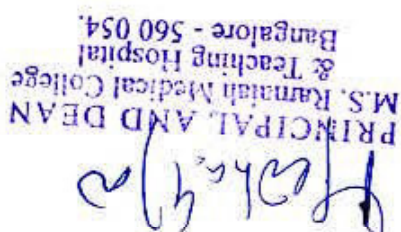 PRINCIPAL AND DEAN
M.S. Ramaiah Medical College
& Teaching Hospital
Bangalore - 560 054.